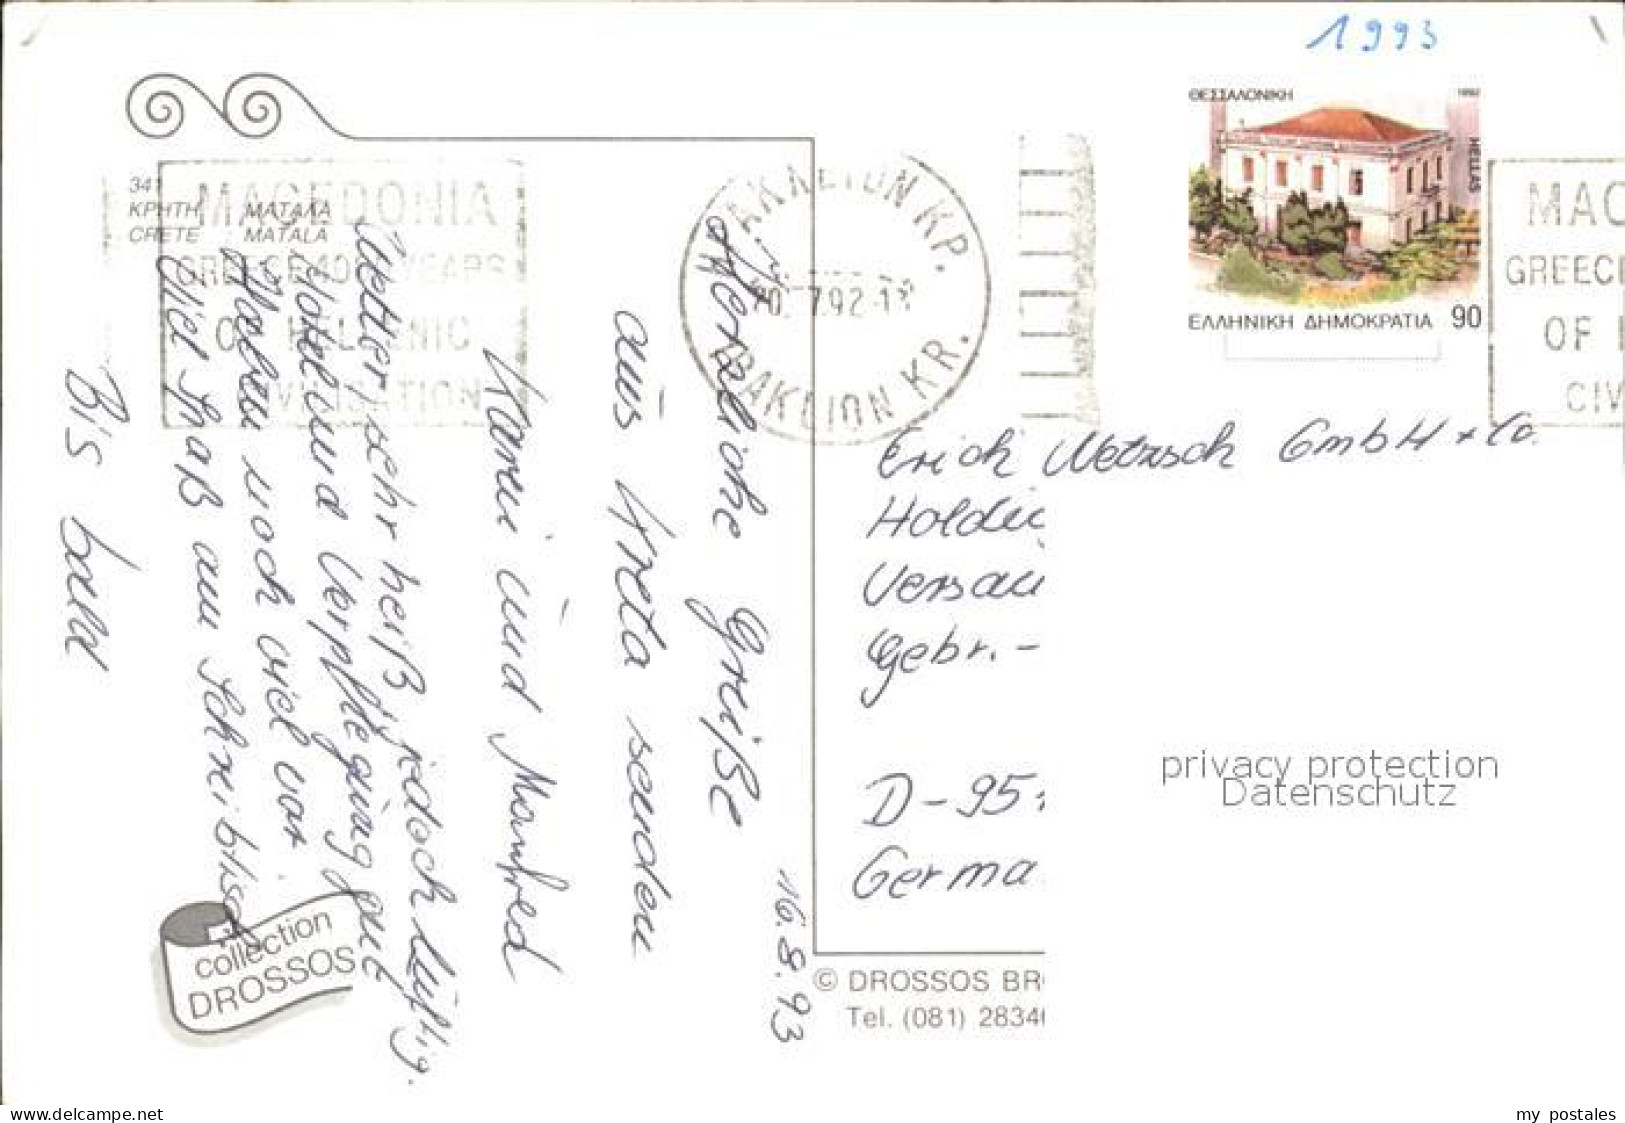 1993
341
ΚΡΗΤΗ ΜΑΤΑΛΑ
CRETE MATALA
MACEDONIA
GREECE 40 YEARS
HELLENIC
CIVILISATION
ΗΡΑΚΛΕΙΟΝ ΚΡ.
7.92
IRAKLION KR.
ΘΕΣΣΑΛΟΝΙΚΗ 1992
HELLAS
ΕΛΛΗΝΙΚΗ ΔΗΜΟΚΡΑΤΙΑ 90
MAC
GREECE
OF
CIV
16.8.93
Herzliche Grüße
aus Kreta senden
Karin und Manfred
Wetter sehr heiß, jedoch luftig.
Hotel und Verpflegung gut
Haben noch viel vor.
Viel Spaß am Schreibtisch
Bis bald
Erich Netzsch GmbH + Co.
Holdi
Versan
Gebr.-
D-95
Germa
collection
DROSSOS
© DROSSOS BR
Tel. (081) 2834
privacy protection
Datenschutz
www.delcampe.net
my_postales